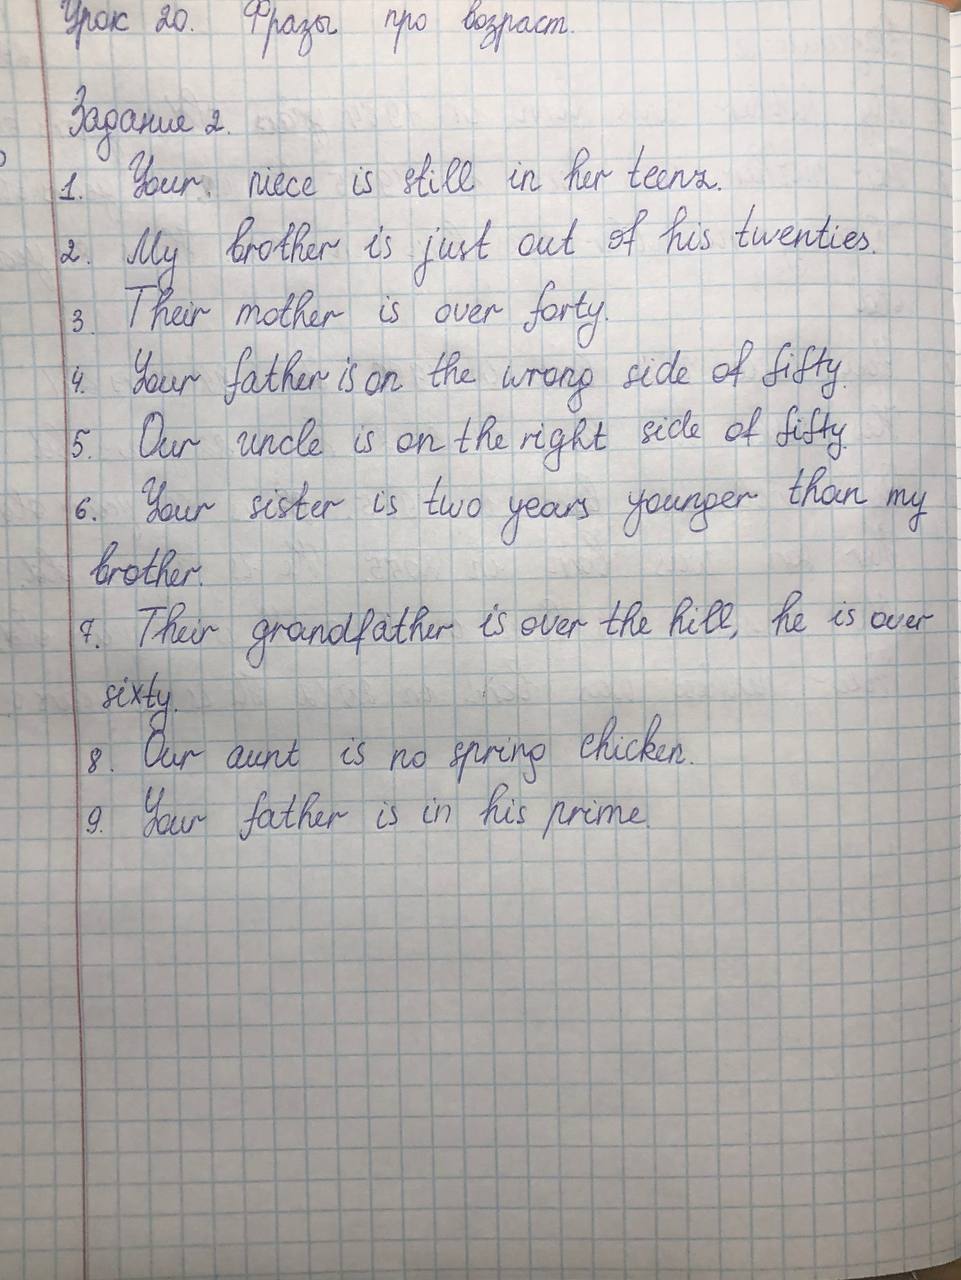 Урок 20. Фразы про возраст.
Задание 2.
1. Your niece is still in her teenz.
2. My brother is just out of his twenties.
3. Their mother is over forty.
4. Your father is on the wrong side of fifty.
5. Our uncle is on the right side of fifty.
6. Your sister is two years younger than my
brother.
7. Their grandfather is over the hill, he is over
sixty.
8. Our aunt is no spring chicken.
9. Your father is in his prime.